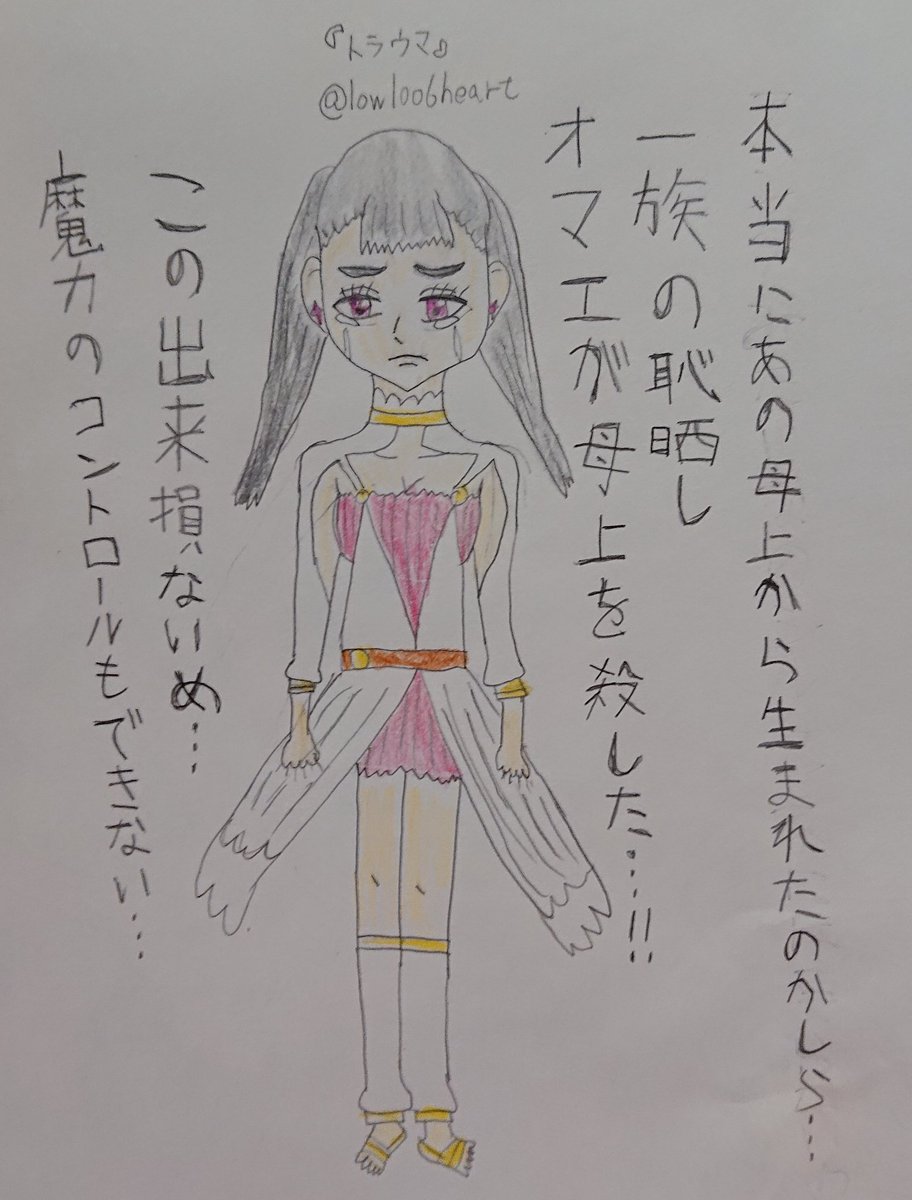 『トラウマ』
@lowloo6heart
本当にあの母上から生まれたのかしら…
一族の恥晒し
オマエが母上を殺した…!!
この出来損ないめ…
魔力のコントロールもできない…